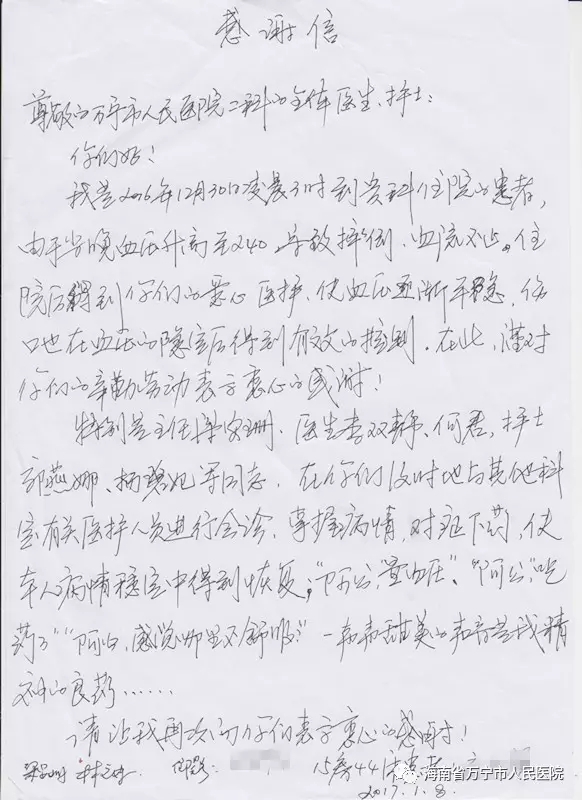 感谢信
尊敬的万宁市人民医院二科的全体医生、护士：
你们好！
我是2016年12月30日凌晨3时到贵科住院的患者，
由于当晚血压升高至240，导致摔倒、血流不止。住
院后得到你们的爱心医护，使血压逐渐平稳，伤
口也在血压的稳定后得到有效的控制。在此，谨对
你们的辛勤劳动表示衷心的感谢！
特别是主任梁定珊、医生李双静、何君，护士
郭燕娜、杨碧妃等同志，在你们及时地与其他科
室有关医护人员进行会诊，掌握病情，对症下药，使
本人病情稳定中得到恢复。“阿公，量血压”、“阿公，吃
药了”“阿公，感觉哪里不舒服？”一声声甜美的声音是我精
神的良药……
请让我再次向你们表示衷心的感谢！
15房44床患者
2017.1.8.
海南省万宁市人民医院